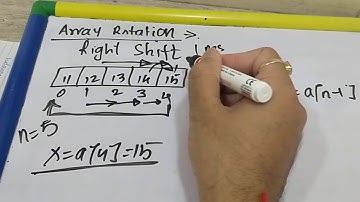 Array Rotation :-
Right Shift
11 12 13 14 15
0 1 2 3 4
= a[n-1]
n=5
x=a[4]=15